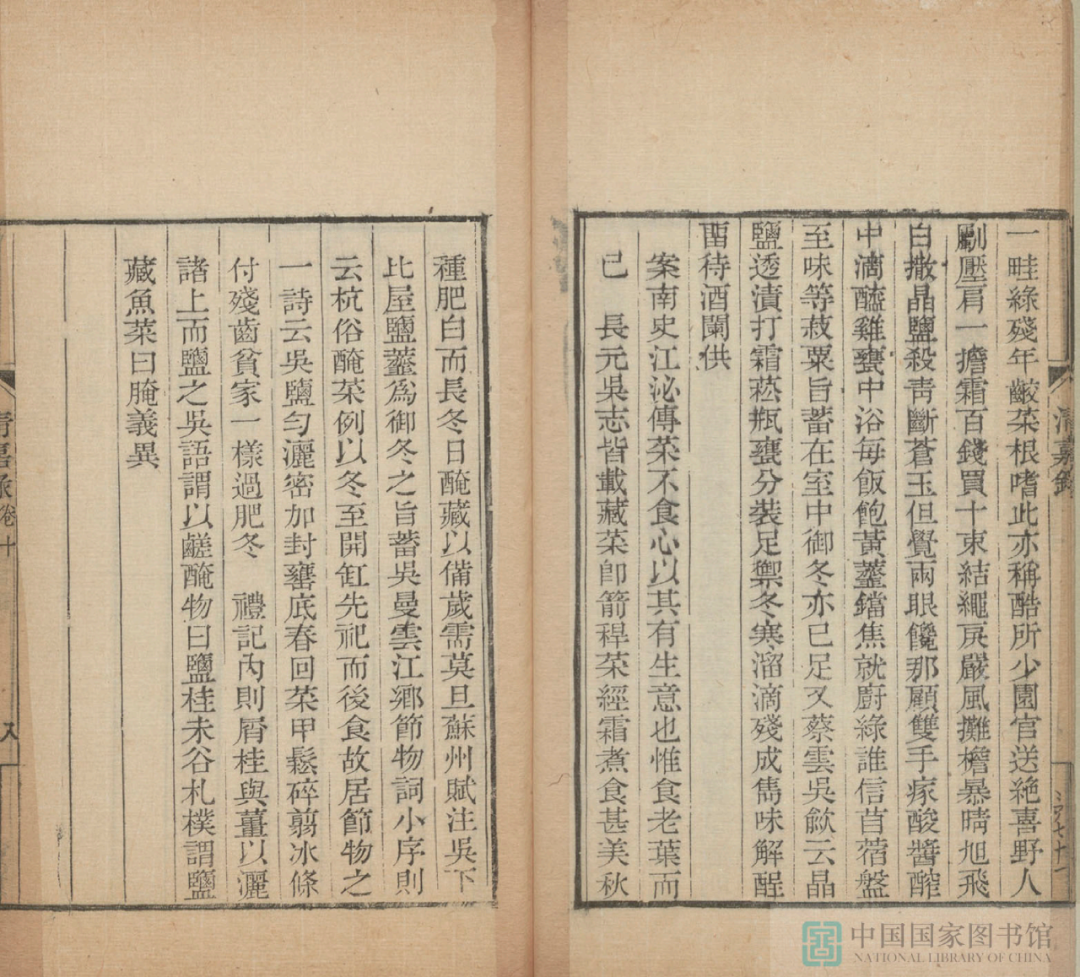 一畦綠殘年齩菜根嗜此亦稱酷所少園官送絶喜野人
劚壓肩一擔霜百錢買十束結繩戻嚴風攤檐暴晴旭飛
白撒晶鹽殺靑斷蒼玉但覺兩眼饞那顧雙手瘃酸醬醡
中滴醯雞甕中浴每飯飽黃虀鐺焦就廚綠誰信苜蓿盤
至味等菽粟旨蓄在室中御冬亦已足又蔡雲吳歈云晶
鹽透漬打霜菘瓶甕分裝足禦冬寒溜滴殘成雋味解酲
畱待酒闌供
案南史江泌傳菜不食心以其有生意也惟食老葉而
已 長元吳志皆載藏菜卽箭稈菜經霜煮食甚美秋
種肥白而長冬日醃藏以備歲需莫旦蘇州賦注吳下
比屋鹽虀爲御冬之旨蓄吳曼雲江鄕節物詞小序則
云杭俗醃菜例以冬至開缸先祀而後食故居節物之
一詩云吳鹽匀灑密加封罋底春回菜甲鬆碎翦冰條
付殘齒貧家一樣過肥冬 禮記內則屑桂與薑以灑
諸上而鹽之吳語謂以鹺醃物曰鹽桂未谷札樸謂鹽
藏魚菜曰腌義異
清嘉錄
清嘉錄 卷十
中国国家图书馆
NATIONAL LIBRARY OF CHINA